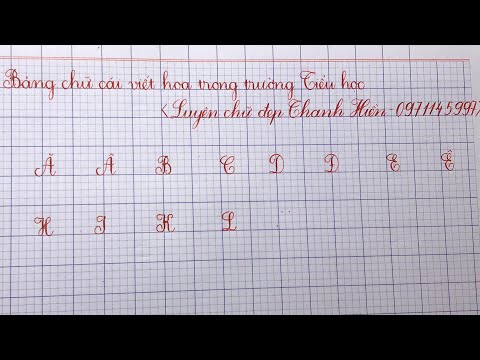 Bảng chữ cái viết hoa trong trường Tiểu học
<Luyện chữ đẹp Thanh Hiền-0971145997
Ă Â B C D Đ E Ê
H I K L